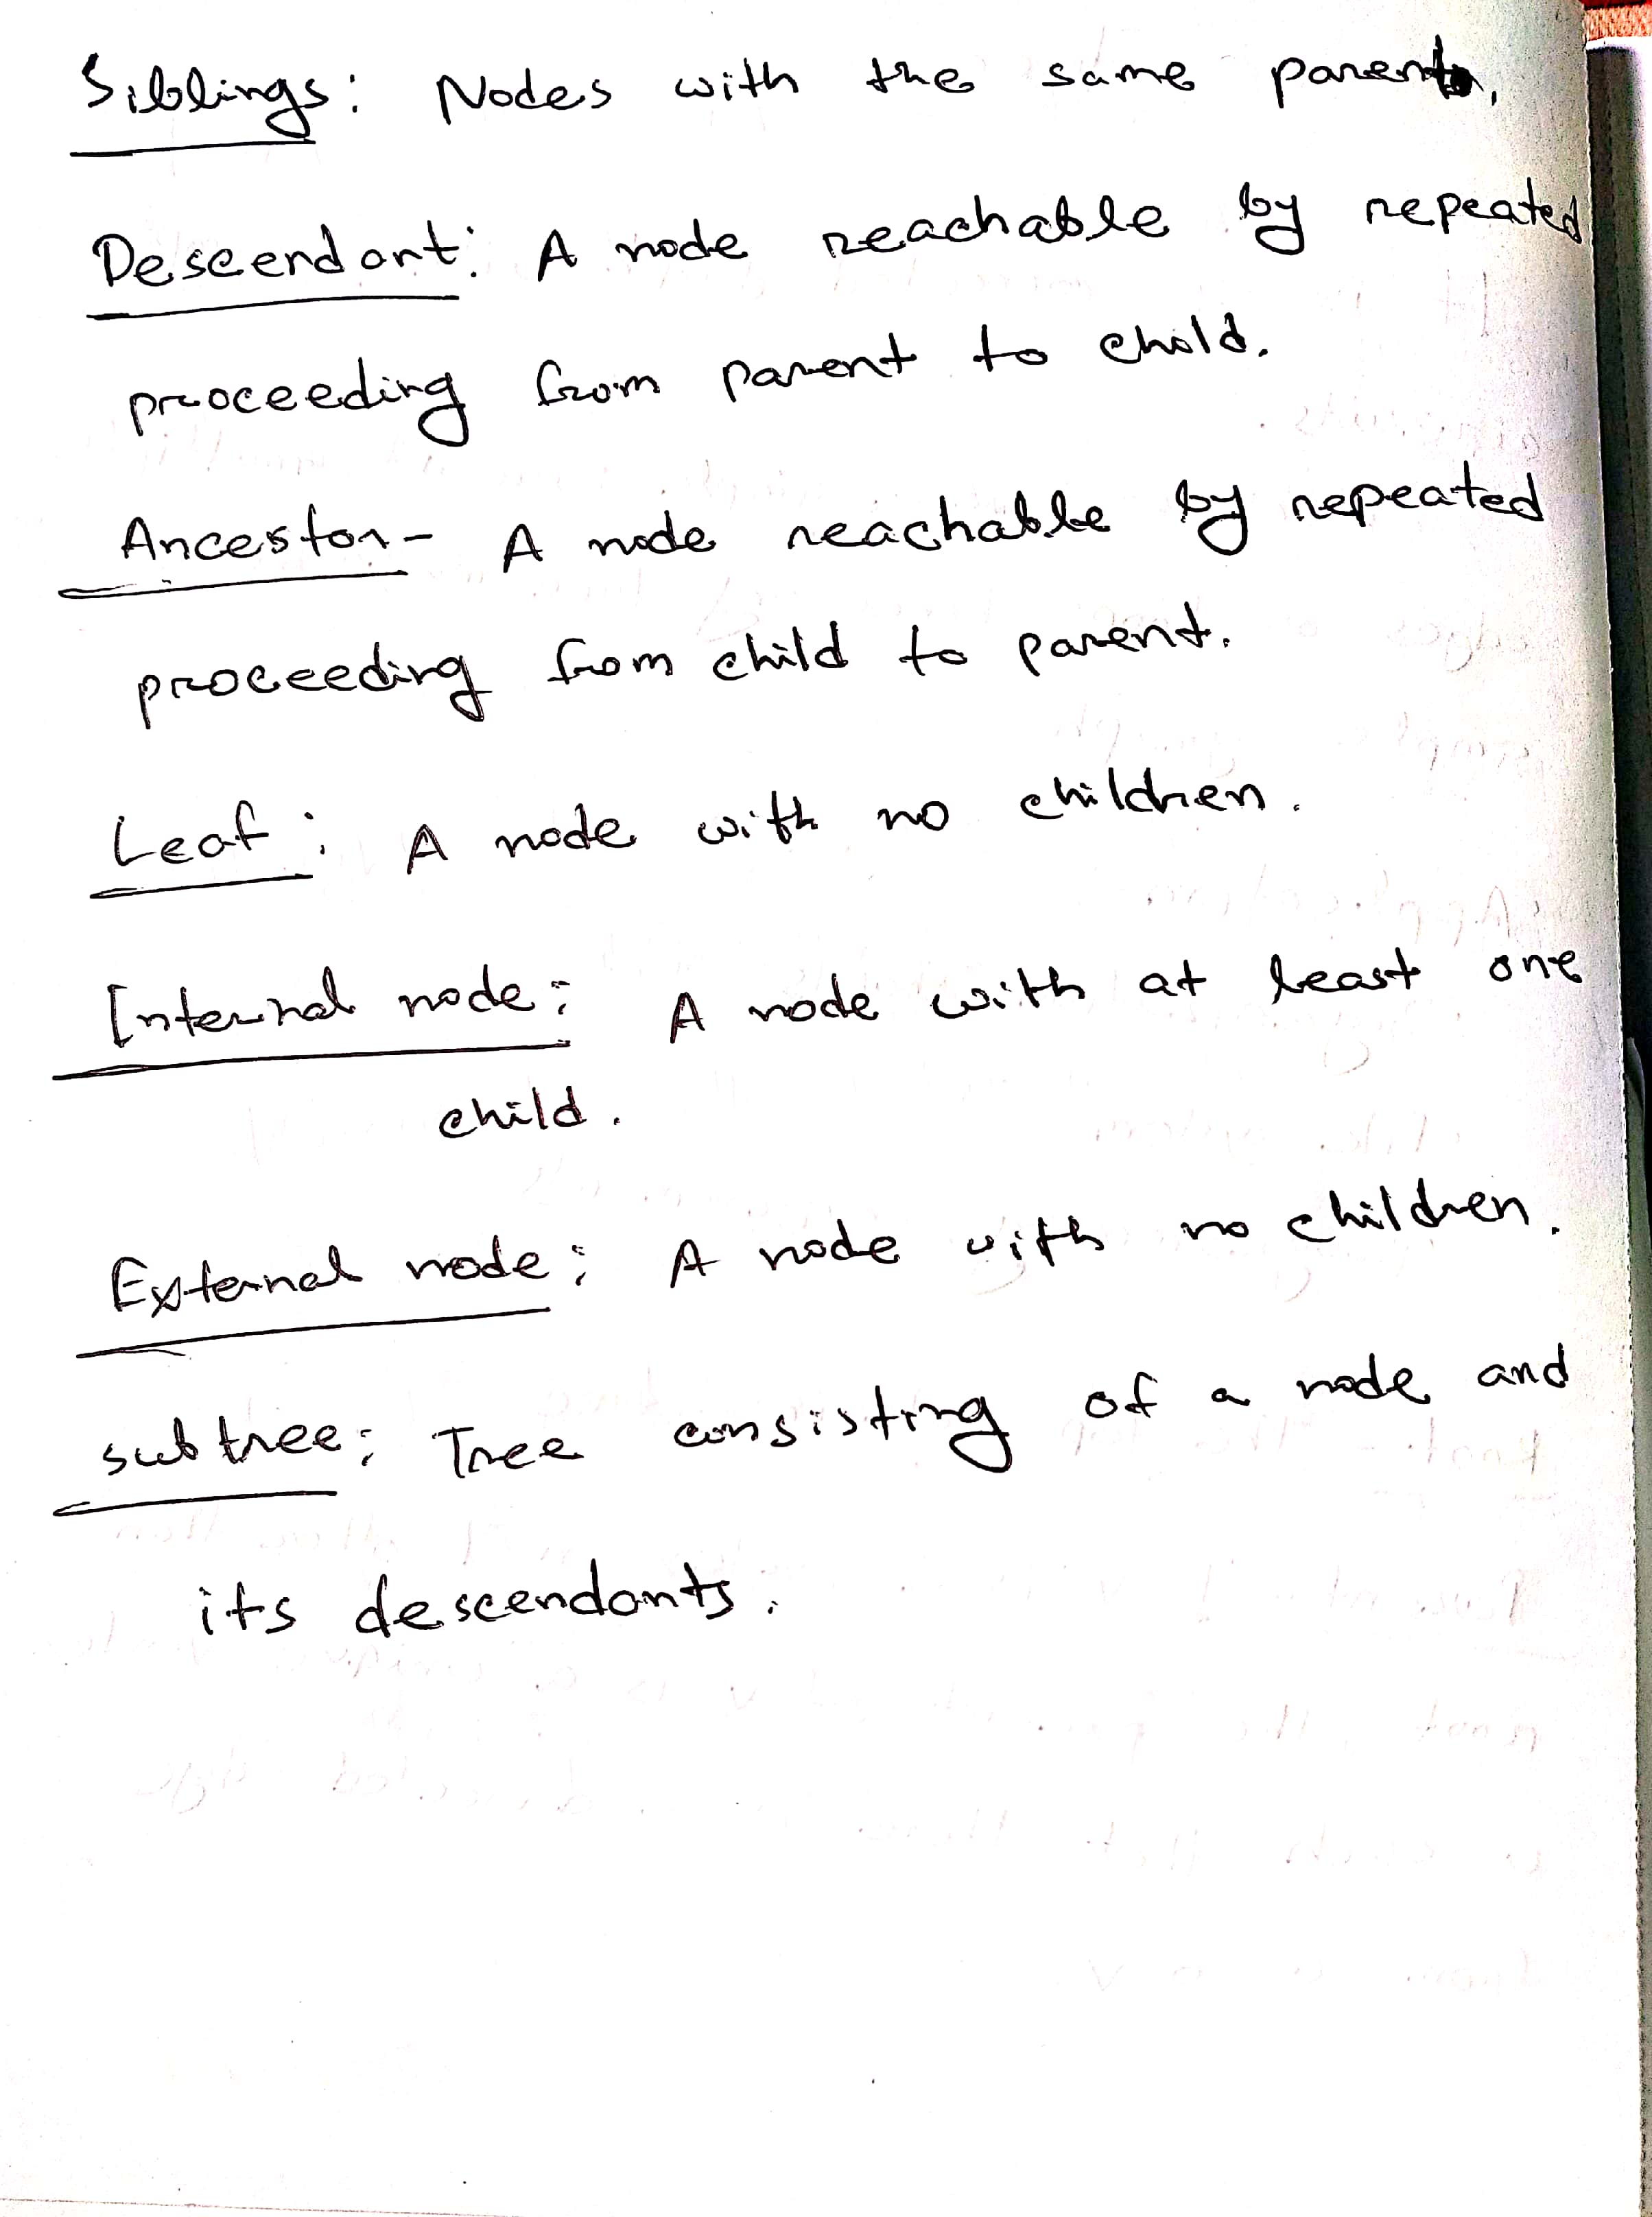 Siblings: Nodes with the same parent.
Descendant: A node reachable by repeated
proceeding from parent to child.
Ancestor- A node reachable by repeated
proceeding from child to parent.
Leaf: A node with no children.
Internal node: A node with at least one
child.
External node: A node with no children.
subtree: Tree consisting of a node and
its descendants.